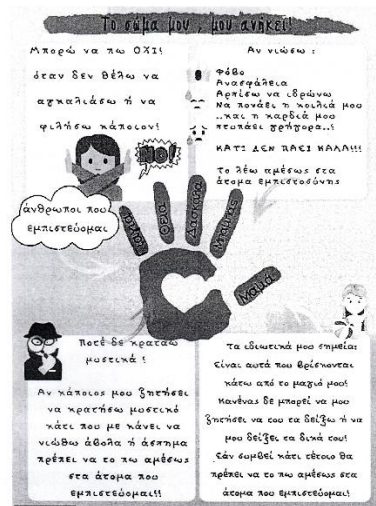 Το σώμα μου , μου ανήκει!
Μπορώ να πω ΟΧΙ!
όταν δεν θέλω να
αγκαλιάσω ή να
φιλήσω κάποιον!
NO!
Αν νιώσω :
Φόβο
Ανασφάλεια
Αρχίσω να ιδρώνω
Να πονάει η κοιλιά μου
..και η καρδιά μου
χτυπάει γρήγορα..!
ΚΑΤΙ ΔΕΝ ΠΑΕΙ ΚΑΛΑ!!!
Το λέω αμέσως στα
άτομα εμπιστοσύνης
άνθρωποι που
εμπιστεύομαι
Δασκάλα
Μπαμπάς
Μαμά
Ποτέ δε κρατάω
μυστικά !
Αν κάποιος μου ζητήσει
να κρατήσω μυστικό
κάτι που με κάνει να
νιώθω άβολα ή άσπημα
πρέπει να το πω αμέσως
στα άτομα που
εμπιστεύομαι!!
Τα ιδιωτικά μου σημεία:
Είναι αυτά που βρίσκονται
κάτω από το μαγιό μου!
Κανένας δε μπορεί να μου
ζητήσει να του τα δείξω ή να
μου δείξει τα δικά του!
Εάν συμβεί κάτι τέτοιο θα
πρέπει να το πω αμέσως στα
άτομα που εμπιστεύομαι!